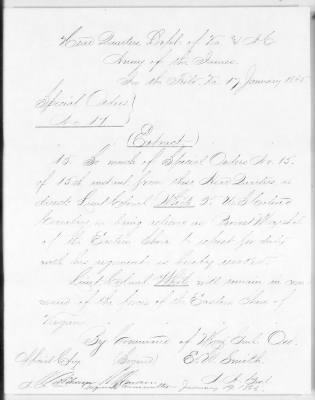 Head Quarters Dept. of Va & N.C.
Army of the James
In the Field Va 17 January 1865
Special Orders
No. 17
(Extract)
15 So much of Special Orders No. 15.
of 15th instant from these Head Quarters as
directs Lieut Colonel White 2" U S Colored
Cavalry on being relieved as Provost Marshal
of the Eastern Shore to report for duty
with his regiment is hereby revoked.
Lieut Colonel White will remain in com-
mand of the forces of the Eastern Shore of
Virginia
By Command of Major Genl. Ord.
(Signed) E. W. Smith
Official Copy
January